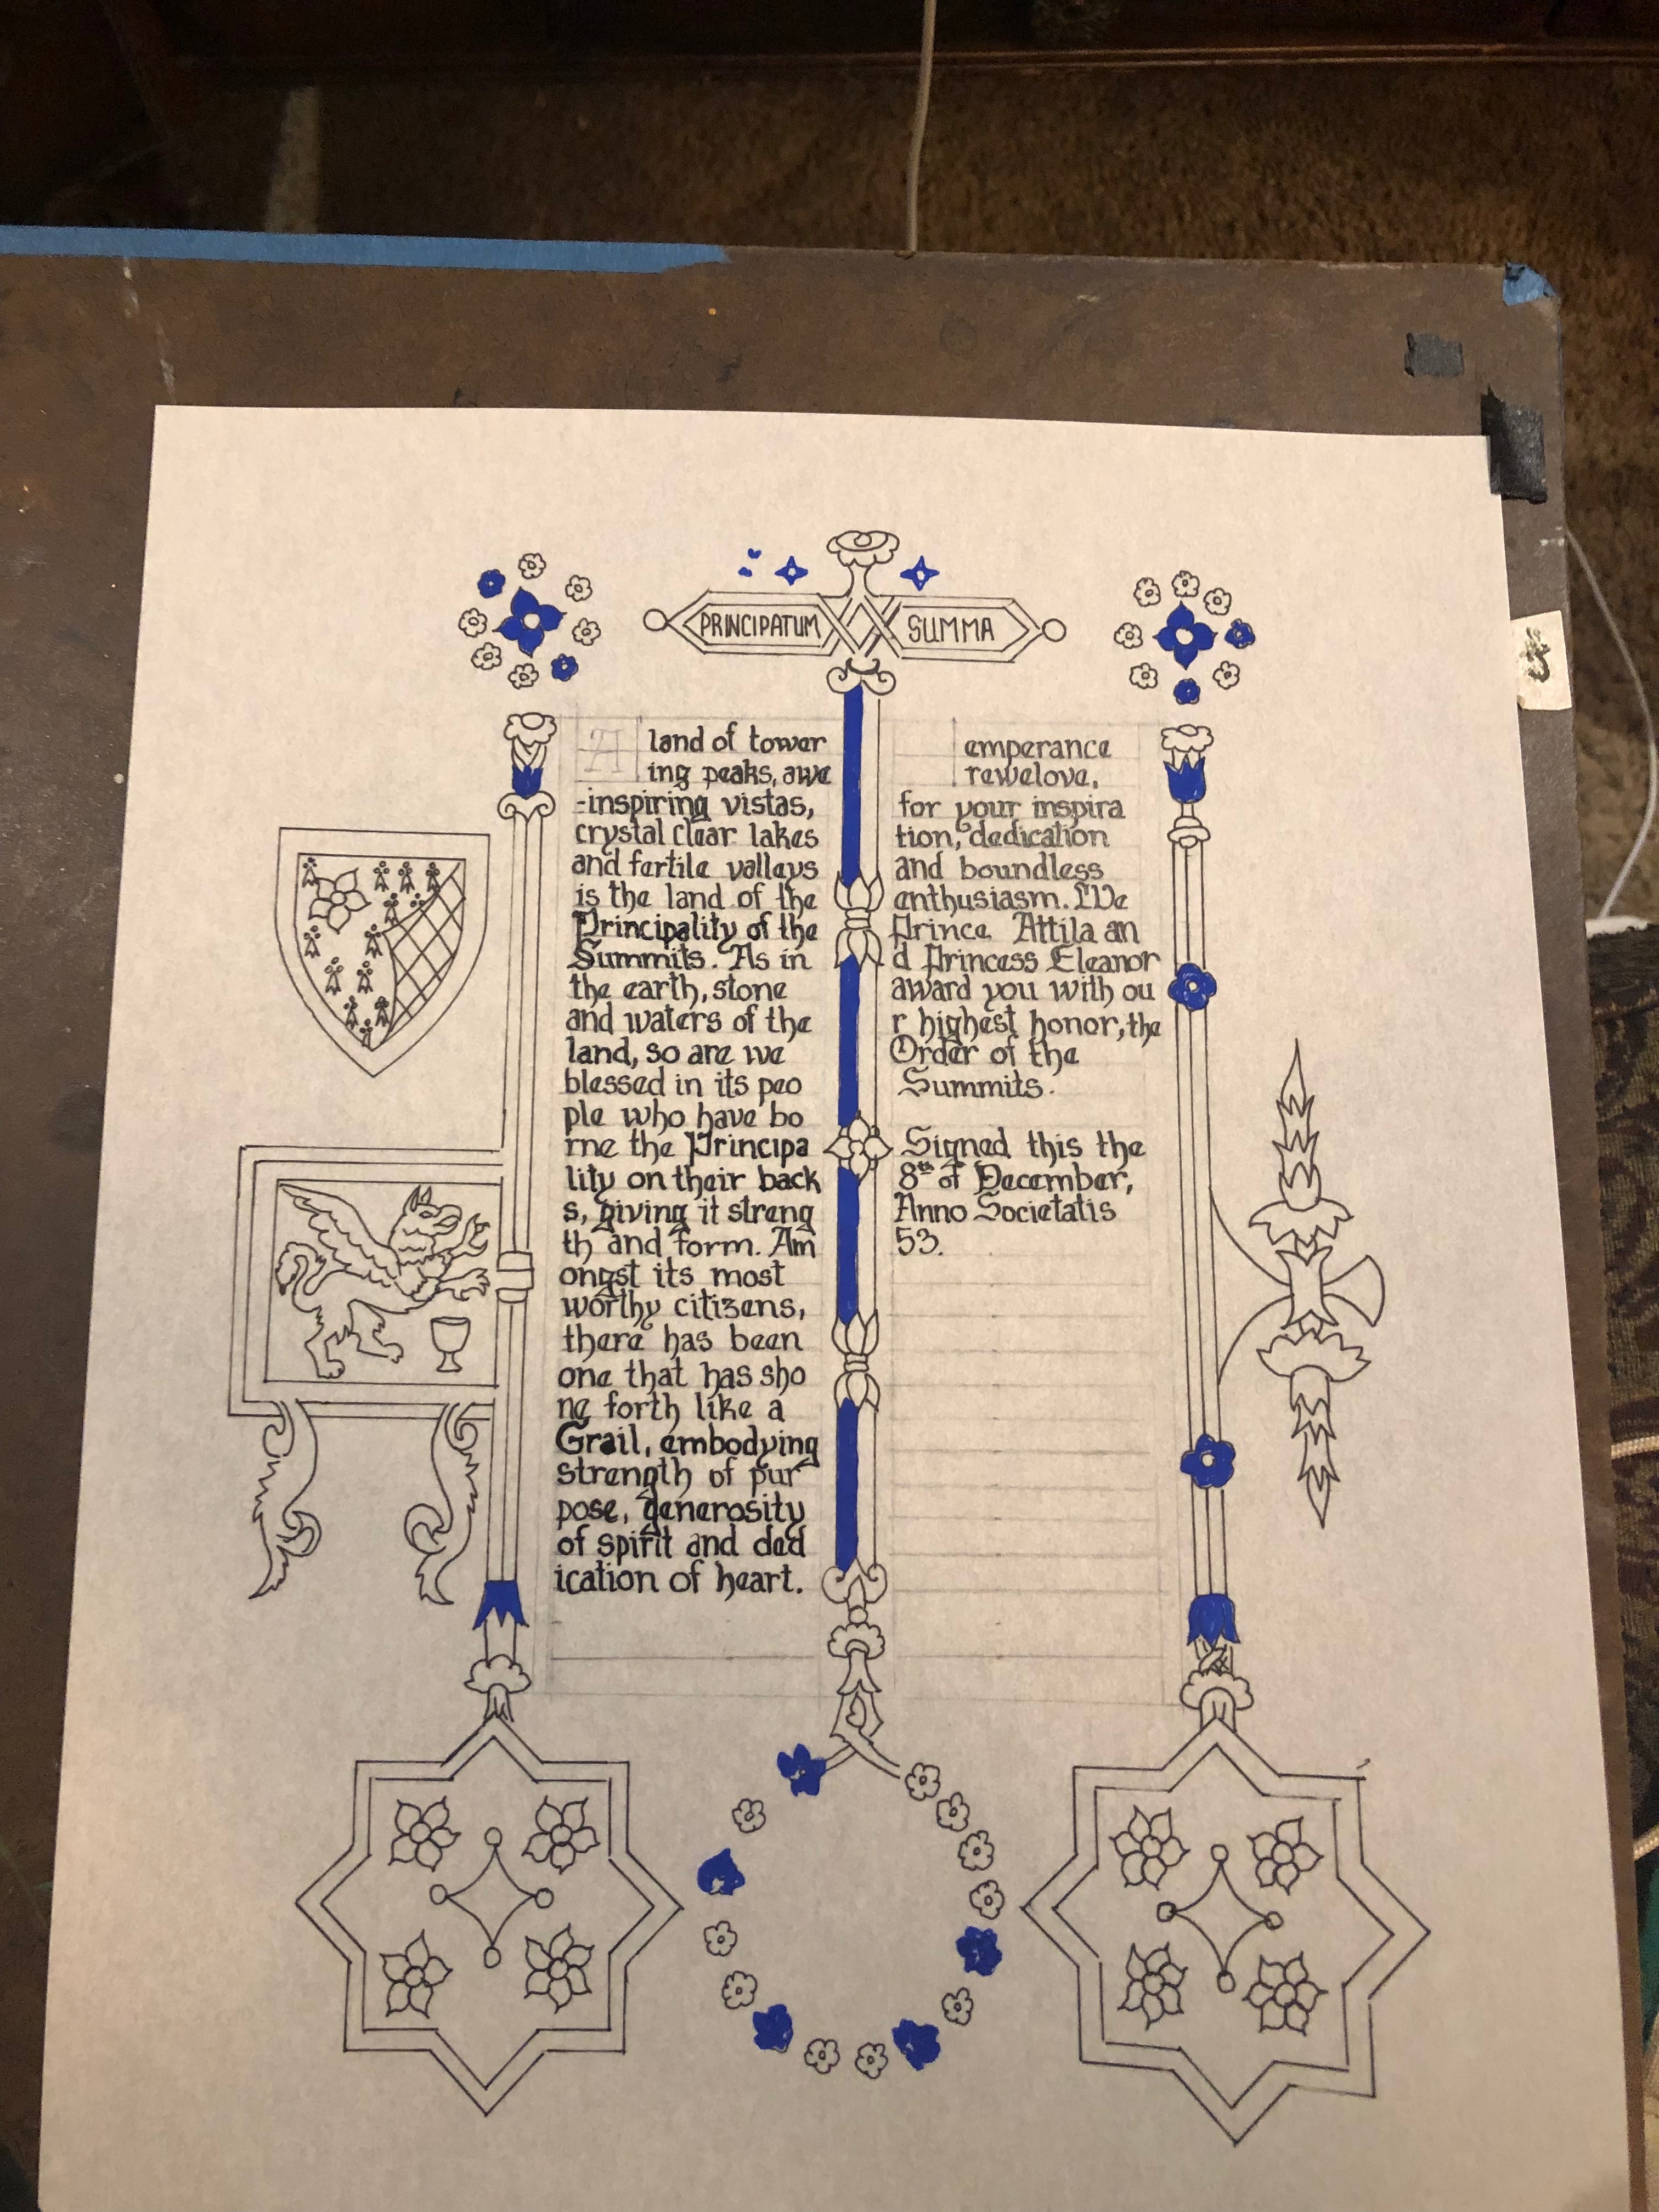 PRINCIPATUM SUMMA
A land of tower
ing peaks, awe
-inspiring vistas,
crystal clear lakes
and fertile valleys
is the land of the
Principality of the
Summits. As in
the earth, stone
and waters of the
land, so are we
blessed in its peo
ple who have bo
rne the Principa
lity on their back
s, giving it streng
th and form. Am
ongst its most
worthy citizens,
there has been
one that has sho
ne forth like a
Grail, embodying
strength of pur
pose, generosity
of spirit and ded
ication of heart.
emperance
rewelove,
for your inspira
tion, dedication
and boundless
enthusiasm. We
Prince Attila an
d Princess Eleanor
award you with ou
r highest honor, the
Order of the
Summits.
Signed this the
8th of December,
Anno Societatis
53.